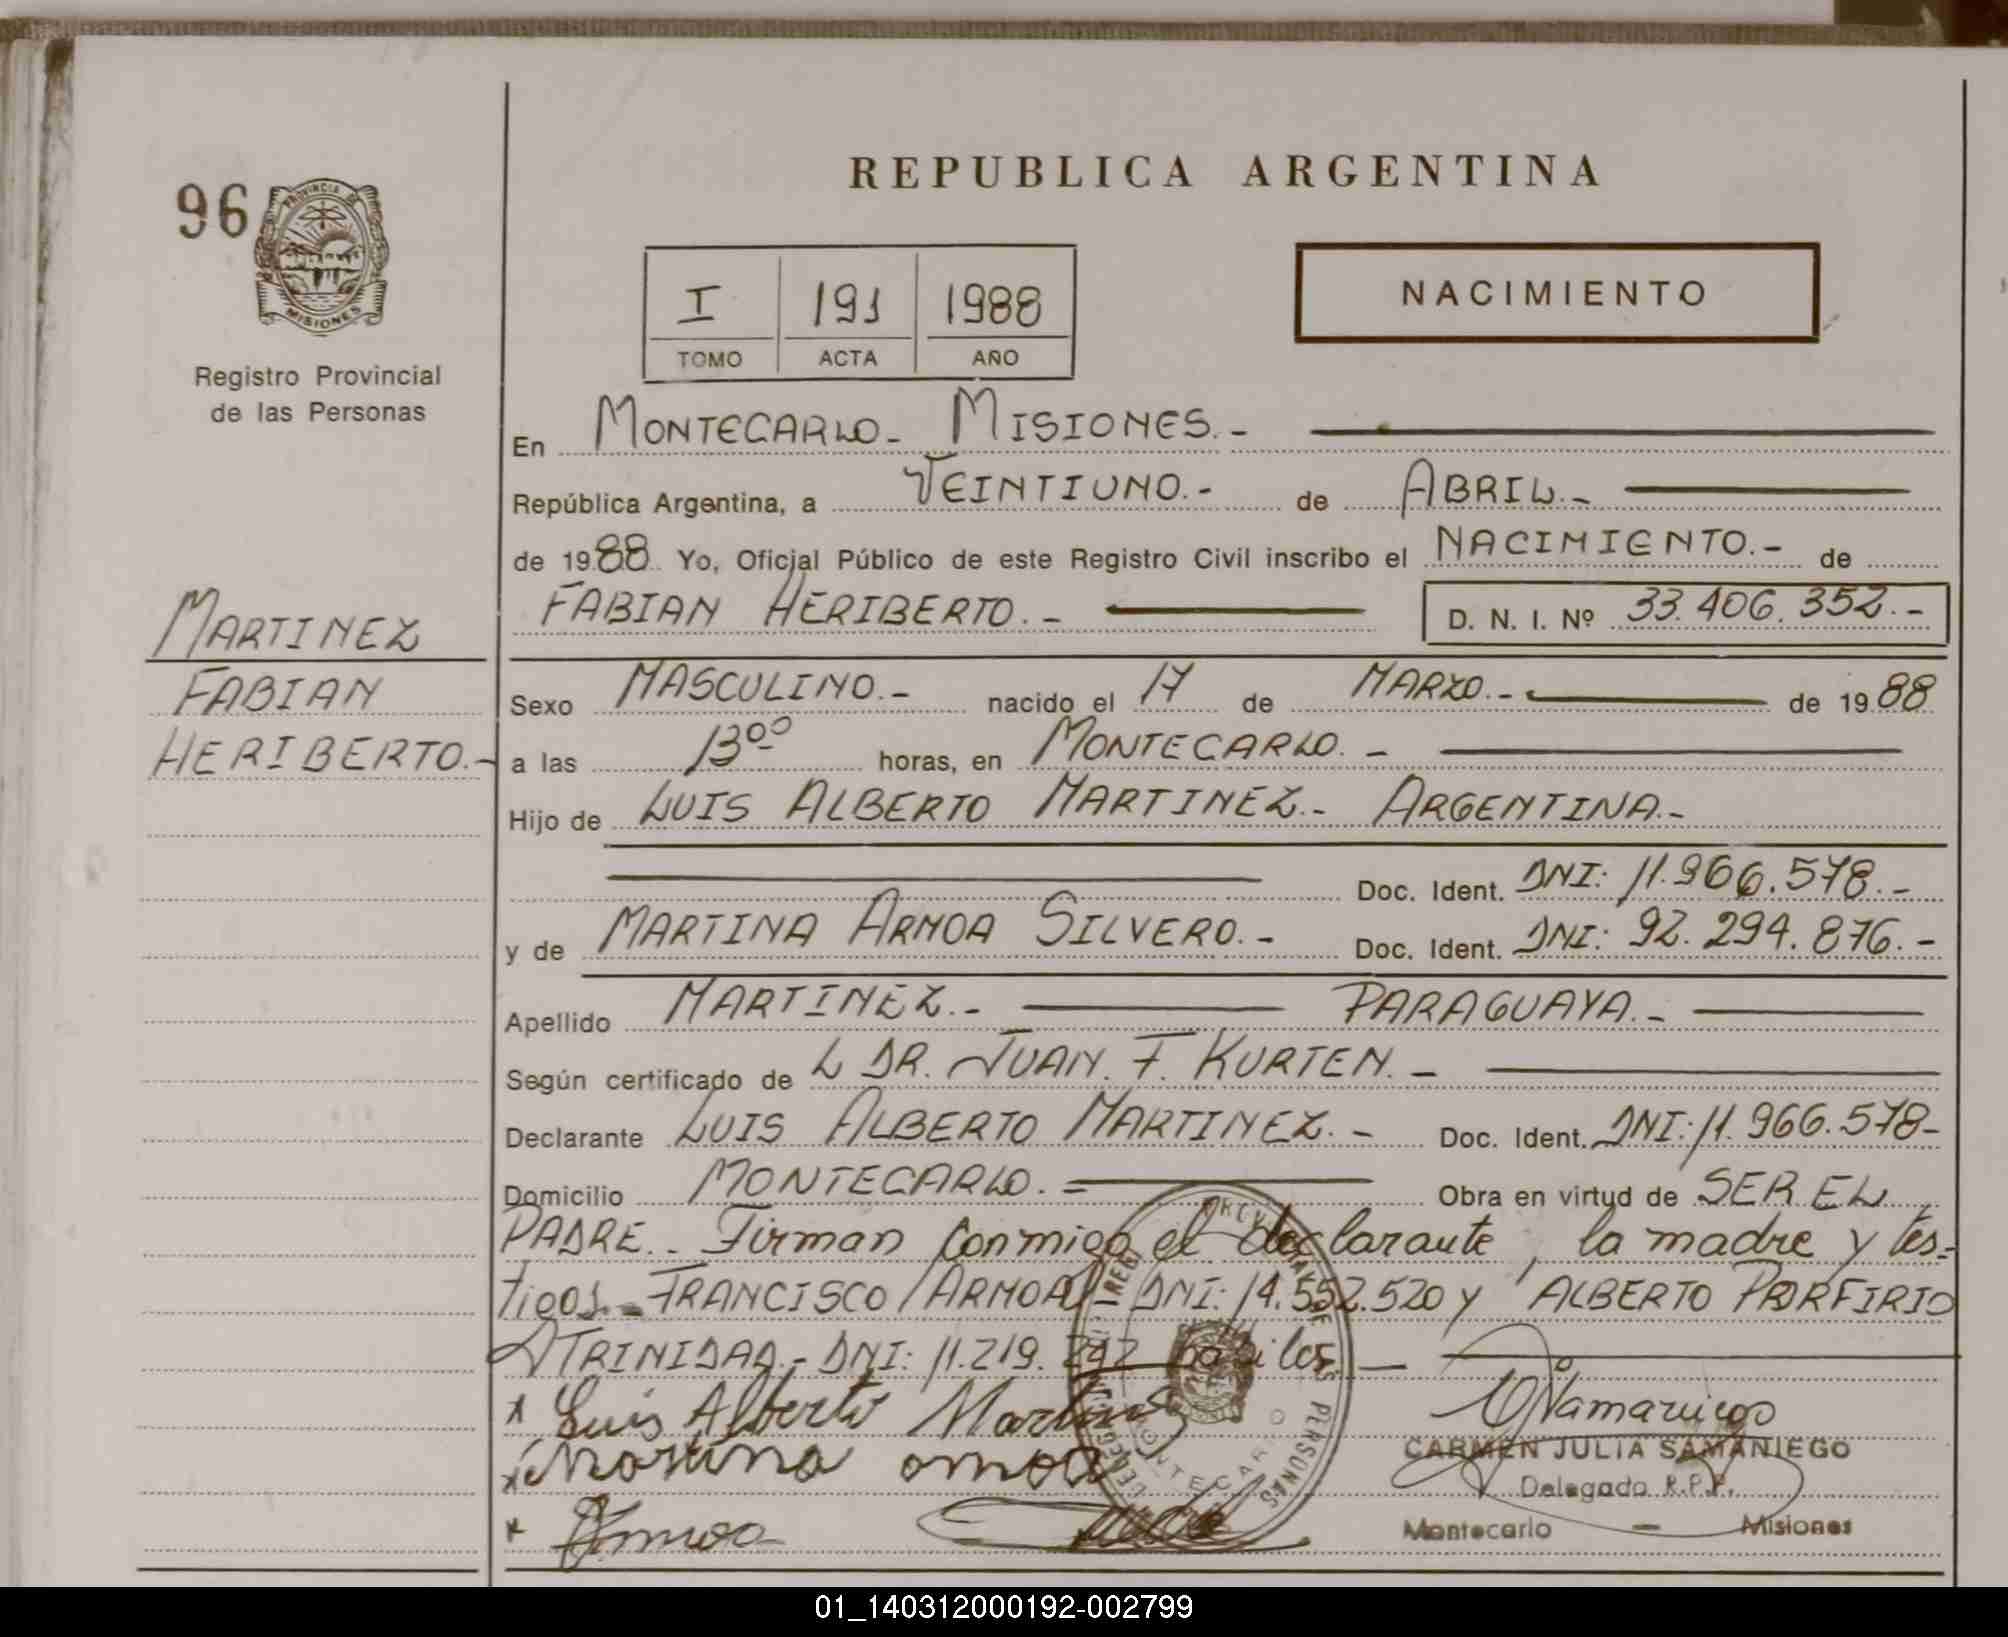 REPUBLICA ARGENTINA
96
PROVINCIA DE
MISIONES
Registro Provincial
de las Personas
NACIMIENTO
I 191 1988
TOMO ACTA AÑO
En MONTECARLO - MISIONES.-
República Argentina, a VEINTIUNO.- de ABRIL.-
de 1988 Yo, Oficial Público de este Registro Civil inscribo el NACIMIENTO.- de
FABIAN HERIBERTO.- D. N. I. Nº 33.406.352.-
MARTINEZ
FABIAN
HERIBERTO.-
Sexo MASCULINO.- nacido el 17 de MARZO.- de 1988
a las 13ºº horas, en MONTECARLO.-
Hijo de LUIS ALBERTO MARTINEZ.- ARGENTINA.-
Doc. Ident. DNI: 11.966.578.-
y de MARTINA ARMOA SILVERO.- Doc. Ident. DNI: 92.294.876.-
Apellido MARTINEZ.- PARAGUAYA.-
Según certificado de L DR. JUAN. F. KURTEN.-
Declarante LUIS ALBERTO MARTINEZ.- Doc. Ident. DNI: 11.966.578-
Domicilio MONTECARLO.- Obra en virtud de SER EL
PADRE.. Firman conmigo el declarante, la madre y tes=
tigos.- FRANCISCO ARMOA - DNI: 14.552.520 y ALBERTO PORFIRIO
TRINIDAD.- DNI: 11.219.242 hábiles.
x Luis Alberto Martinez
x Martina armoa
x Armoa
CARMEN JULIA SAMANIEGO
Delegado R.P.P.
Montecarlo - Misiones
MONTECARLO
01_140312000192-002799